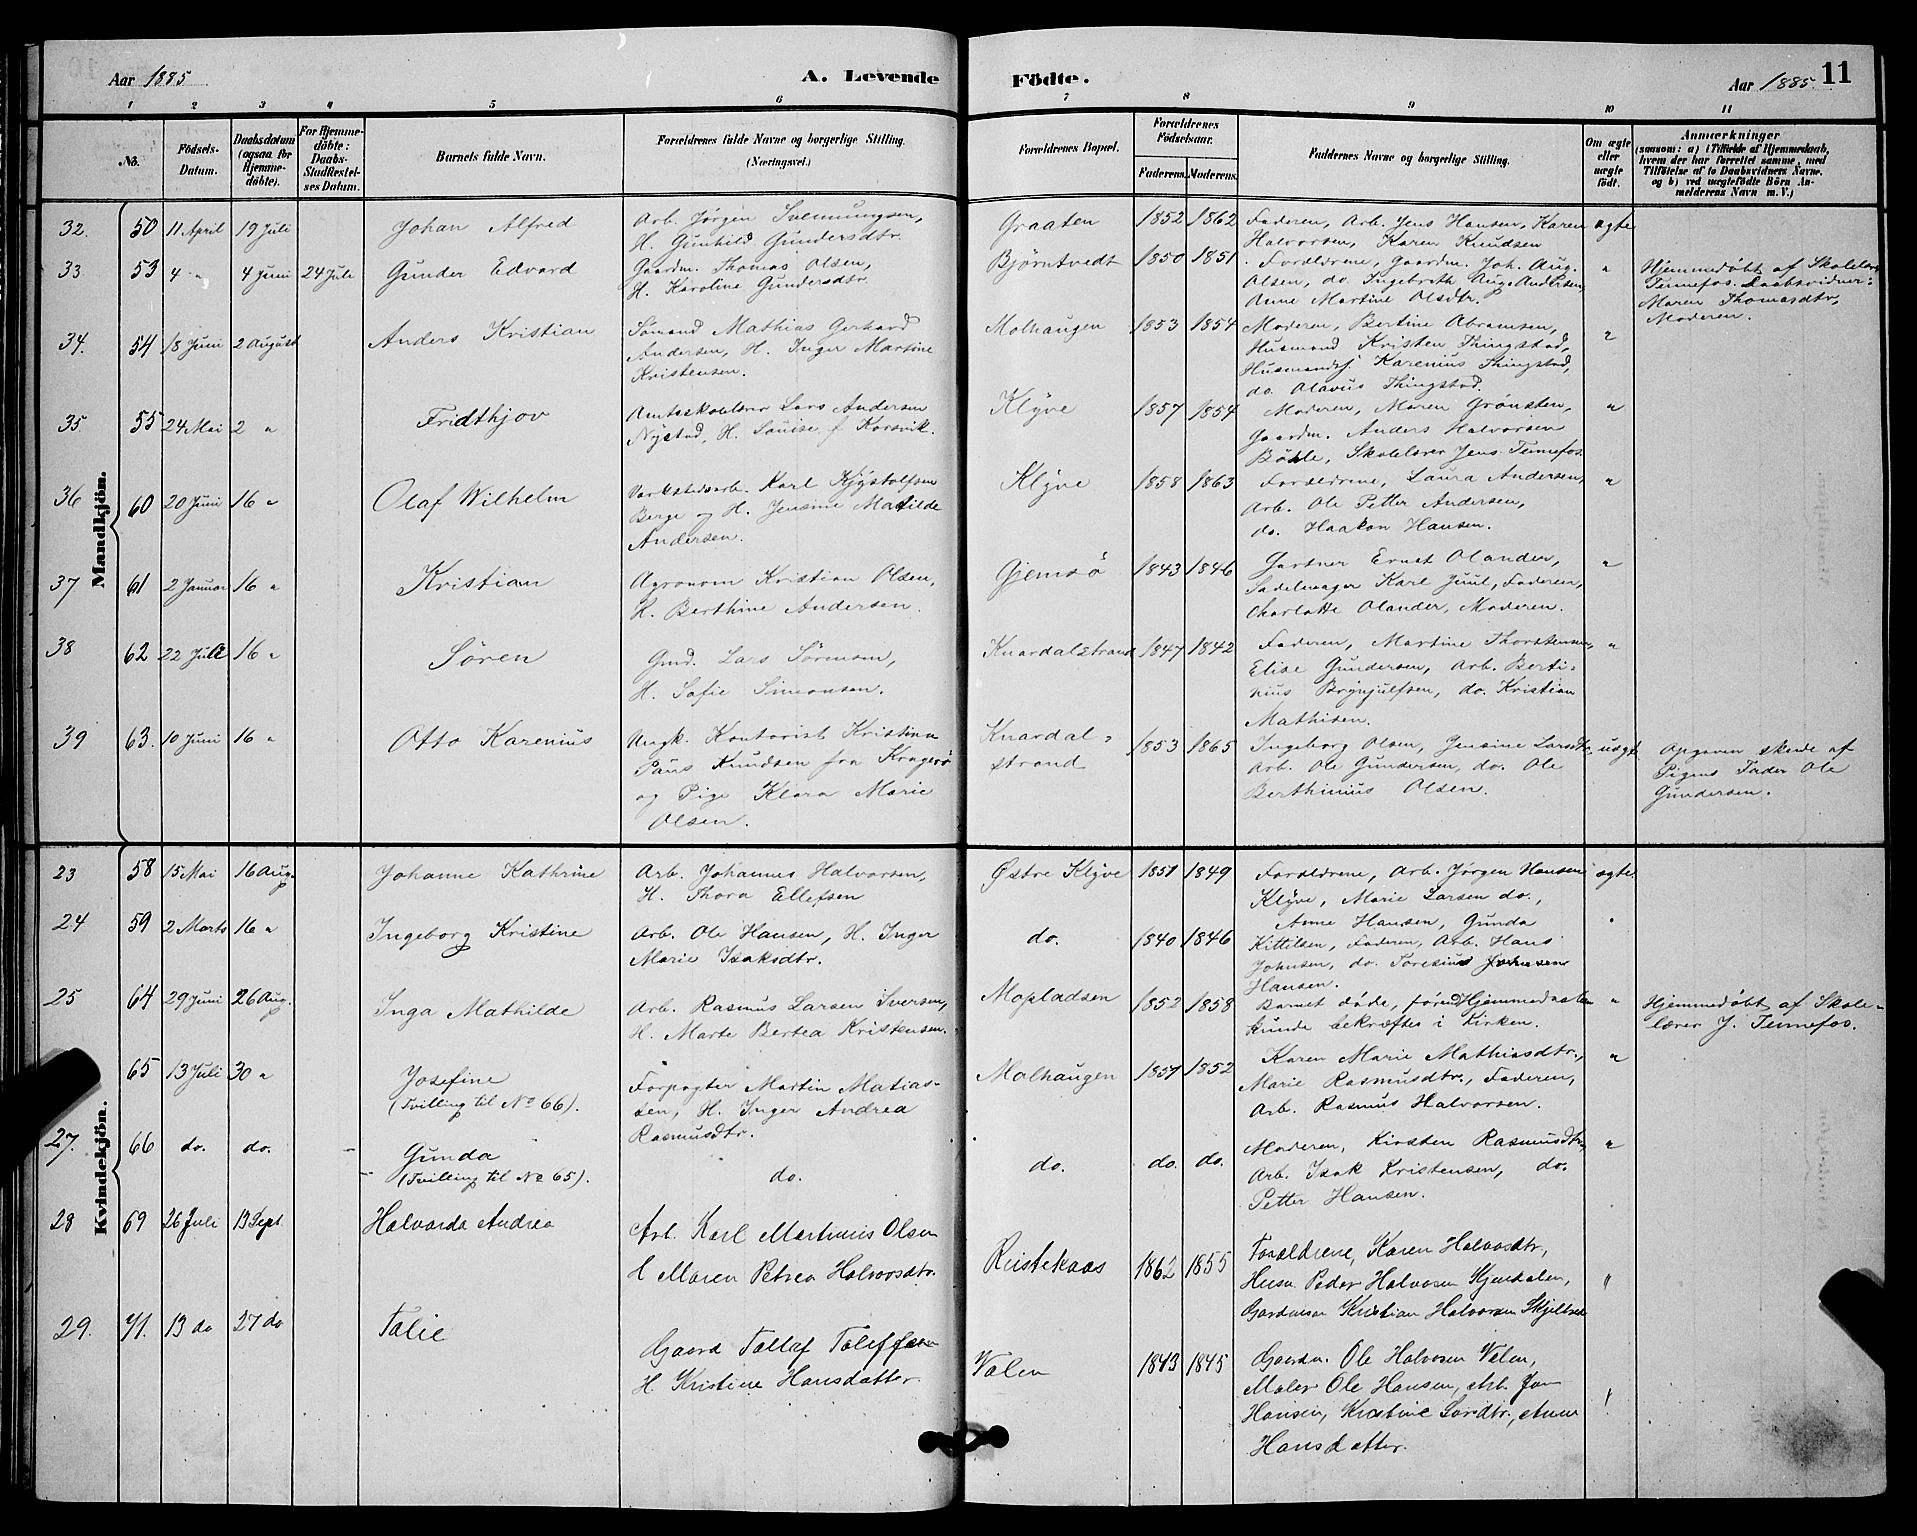 Aar 1885. A. Levende Födte. Aar 1885. 11
1 2 3 4 5 6 7 8 9 10 11
No.
Födsels-
Datum.
Daabsdatum
(ogsaa for
Hjemme-
döbte).
For Hjemme-
döbte:
Daabs-
Stadfæstel-
ses Datum.
Barnets fulde Navn.
Forældrenes fulde Navne og borgerlige Stilling.
(Næringsvei.)
Forældrenes Bopæl.
Forældrenes
Födselsaar.
Faderens. Moderens.
Faddernes Navne og borgerlige Stilling.
Om ægte
eller
uægte
födt.
Anmærkninger
(saasom: a) i Tilfælde af Hjemmedaab,
hvem der har forrettet samme, med
Tilföielse af to Daabsvidners Navne.
og b) ved uægtefödte Börn An-
melderens Navn m. V.)
Mandkjön.
32. 50 11 April 19 Juli
Johan Alfred
Arb. Jørgen Svennungsen,
H. Gunhild Gundersdtr.
Graaten 1852 1862
Faderen, Arb. Jens Hansen, Karen
Halvorsen, Karen Knudsen
ægte
33 53 4 " 4 Juni 24 Juli
Gunder Edvard
Gaardm. Thomas Olsen,
H. Karoline Gundersdtr.
Bjørntvedt 1850 1851
Forældrene, Gaardm. Joh. Aug.
Olsen, do. Ingebreth Aug. Andersen,
Anne Martine Olsdtr.
"
Hjemmedøbt af Skolelærer
Tennefos. Daabsvidner:
Maren Thomasdtr,
Moderen.
34. 54 18 Juni 2 August
Anders Kristian
Sømand Mathias Gerhard
Andersen, H. Inger Martine
Kristensen.
Molhaugen 1853 1854
Moderen, Bertine Abramsen,
Husmand Kristen Thingstad,
Husmandsf. Karenius Thingstad,
do. Olavus Thingstad.
"
35. 55 24 Mai 2 "
Fridthjov
Amtsskolelærer Lars Andersen
Nystad, H. Louise f. Korsvik.
Klyve 1857 1854
Moderen, Maren Grønsten,
Gaardm. Anders Halvorsen
Böhle, Skolelærer Jens Tennefos.
"
36 60 20 Juni 16 "
Olaf Wilhelm
Værkstedsarb. Karl Kjystolfsen
Berge og H. Jensine Matilde
Andersen.
Klyve 1858 1863
Forældrene, Laura Andersen,
Arb. Ole Petter Andersen,
do. Haakon Hansen.
"
37 61 2 Januar 16 "
Kristian
Agronom Kristian Olsen,
H. Berthine Andersen.
Gjemsö 1843 1846
Gartner Ernst Olander,
Sadelmager Karl Juul, Faderen,
Charlotte Olander, Moderen.
"
38 62 22 Juli 16 "
Sören
Gmd. Lars Sörensen,
H. Sofie Simonsen.
Knardalstrand 1847 1842
Faderen, Martine Thorstensen,
Elise Gundersen, Arb. Berti-
nius Brynjulfsen, do. Kristian
Mathisen.
"
39 63. 10 Juni 16 "
Otto Karenius
Ungk. Kontorist Kristian
Paus Knudsen fra Kragerø
og Pige Klara Marie
Olsen.
Knardal-
strand
1853 1865
Ingeborg Olsen, Jensine Larsdtr,
Arb. Ole Gundersen, do. Ole
Berthinius Olsen.
uægt
Opgaven skede af
Pigens Fader Ole
Gundersen.
Kvindekjön.
23 58 15 Mai 16 Aug.
Johanne Kathrine
Arb. Johannes Halvorsen,
H. Thora Ellefsen
Østre Klyve 1851 1849
Forældrene, Arb. Jørgen Hansen
Klyve, Marie Larsen do.,
ægte.
24 59 2 Marts 16 "
Ingeborg Kristine
Arb. Ole Hansen, H. Inger
Marie Isaksdtr.
do. 1840 1846
Anne Hansen, Gunda
Kittilsen, Faderen, Arb. Hans
Johnsen, do. Toresius Johnsen
Hansen.
25 64 29 Juni 26 Aug.
Inga Mathilde
Arb. Rasmus Larsen Iversen,
H. Marte Bertea Kristensen.
Mopladsen 1852 1858
Barnet døde, førend Hjemmedaaben
kunde bekræftes i Kirken.
"
Hjemmedøbt af Skole-
lærer J. Tennefos.
65 13 Juli 30 "
Josefine
(Tvilling til No 66).
Forpagter Martin Matias-
sen, H. Inger Andrea
Rasmusdtr.
Molhaugen 1851 1852
Karen Marie Mathiasdtr.,
Marie Rasmusdtr., Faderen,
Arb. Rasmus Halvorsen.
"
27. 66 do. do. -
Gunda
(Tvilling til No 65).
do.
do. do. do.
Moderen, Kirsten Rasmusdtr,
Arb. Isak Kristensen, do.
Petter Hansen.
"
28 69 26 Juli 13 Sept.
Halvarda Andrea
Arb. Karl Martinius Olsen
H Maren Petrea Halvorsdtr.
Ristekaas 1862 1855
Forældrene, Karen Halvorsdtr,
Husm Peder Halvorsen Skjerdalen,
Gardmand Kristian Halvorsen
"
29. 71. 13 do 27 do
Talie
Gaard Tallaf Taleffsen
H. Kristine Hansdatter
Valen 1843 1845
Gaardm. Ole Halvorsen Valen,
Maler Ole Hansen, Arb. Jan
Hansen, Kristine Larsdtr., Anne
Hansdatter.
"